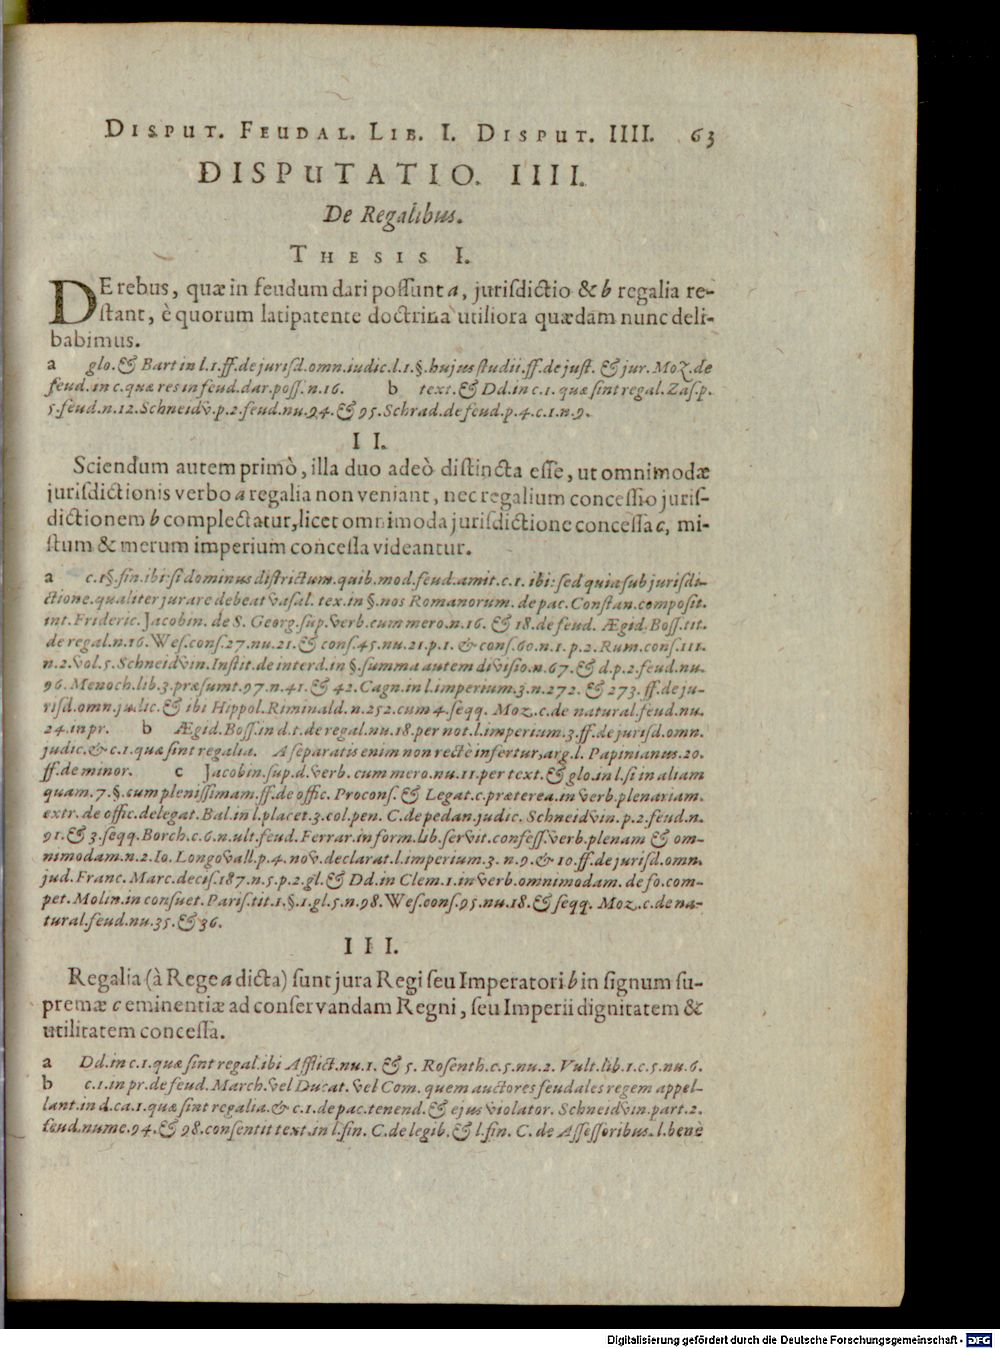 DISPUT. FEUDAL. LIB. I. DISPUT. IIII. 63
DISPUTATIO. IIII.
De Regalibus.
THESIS I.
DE rebus, quæ in feudum dari possunt a, jurisdictio & b regalia re-
stant, è quorum latipatente doctrina utiliora quædam nunc deli-
babimus.
a glo. & Bart in l. 1. ff. de jurisd. omn. iudic. l. 1. §. hujus studii. ff. de just. & jur. Moz. de
feud. in c. quæ res in feud. dar. poss. n. 16. b text. & Dd. in c. 1. quæ sint regal. Zas. p.
5. feud. n. 12. Schneidv. p. 2. feud. nu. 94. & 95. Schrad. de feud. p. 4. c. 1. n. 9.
II.
Sciendum autem primò, illa duo adeò distincta esse, ut omnimodæ
jurisdictionis verbo a regalia non veniant, nec regalium concessio juris-
dictionem b complectatur, licet omnimoda jurisdictione concessa c, mi-
stum & merum imperium concessa videantur.
a c. 1 §. fin. ibi: si dominus districtum. quib. mod. feud. amit. c. 1. ibi: sed quia sub jurisdi-
ctione. qualiter jurare debeat vasal. tex. in §. nos Romanorum. de pac. Constan. composit.
int. Frideric. Jacobin. de S. Georg. sup. verb. cum mero. n. 16. & 18. de feud. Ægid. Boss. tit.
de regal. n. 16. Wes. cons. 27. nu. 21. & cons. 45. nu. 21. p. 1. & cons. 60. n. 1. p. 2. Rum. cons. 111.
n. 2. vol. 5. Schneidvin. Instit. de interd. in §. summa autem divisio. n. 67. & d. p. 2. feud. nu.
96. Menoch. lib. 3. præsumt. 97. n. 41. & 42. Cagn. in l. imperium. 3. n. 272. & 273. ff. de ju-
risd. omn. judic. & ibi Hippol. Riminald. n. 252. cum 4. seqq. Moz. c. de natural. feud. nu.
24. in pr. b Ægid. Boss. in d. t. de regal. nu. 18. per not. l. imperium. 3. ff. de jurisd. omn.
judic. & c. 1. quæ sint regalia. A separatis enim non rectè infertur, arg. l. Papinianus. 20.
ff. de minor. c Jacobin. sup. d. verb. cum mero. nu. 11. per text. & glo. in l. si in aliam
quam. 7. §. cum plenissimam. ff. de offic. Procons. & Legat. c. præterea. in verb. plenariam.
extr. de offic. delegat. Bal. in l. placet. 3. col. pen. C. de pedan. judic. Schneidvin. p. 2. feud. n.
91. & 3. seqq. Borch. c. 6. n. ult. feud. Ferrar. in form. lib. servit. confess. verb. plenam & om-
nimodam. n. 2. Io. Longovall. p. 4. nov. declarat. l. imperium. 3. n. 9. & 10. ff. de jurisd. omn.
jud. Franc. Marc. decis. 187. n. 5. p. 2. gl. & Dd in Clem. 1. in verb. omnimodam. de fo. com-
pet. Molin. in consuet. Paris. tit. 1. §. 1. gl. 5. n. 98. Wes. cons. 95. nu. 18. & seqq. Moz. c. de na-
tural. feud. nu. 35. & 36.
III.
Regalia (à Rege a dicta) sunt jura Regi seu Imperatori b in signum su-
premæ c eminentiæ ad conservandam Regni, seu Imperii dignitatem &
utilitatem concessa.
a Dd. in c. 1. quæ sint regal. ibi Afflict. nu. 1. & 5. Rosenth. c. 5. nu. 2. Vult. lib. 1. c. 5. nu. 6.
b c. 1. in pr. de feud. March. vel Ducat. vel Com. quem auctores feudales regem appel-
lant. in d. ca. 1. quæ sint regalia. & c. 1. de pac. tenend. & ejus violator. Schneidvin. part. 2.
feud. nume. 94. & 98. consentit text. in l. fin. C. de legib. & l. fin. C. de Assessoribus. l. bene
Digitalisierung gefördert durch die Deutsche Forschungsgemeinschaft - DFG